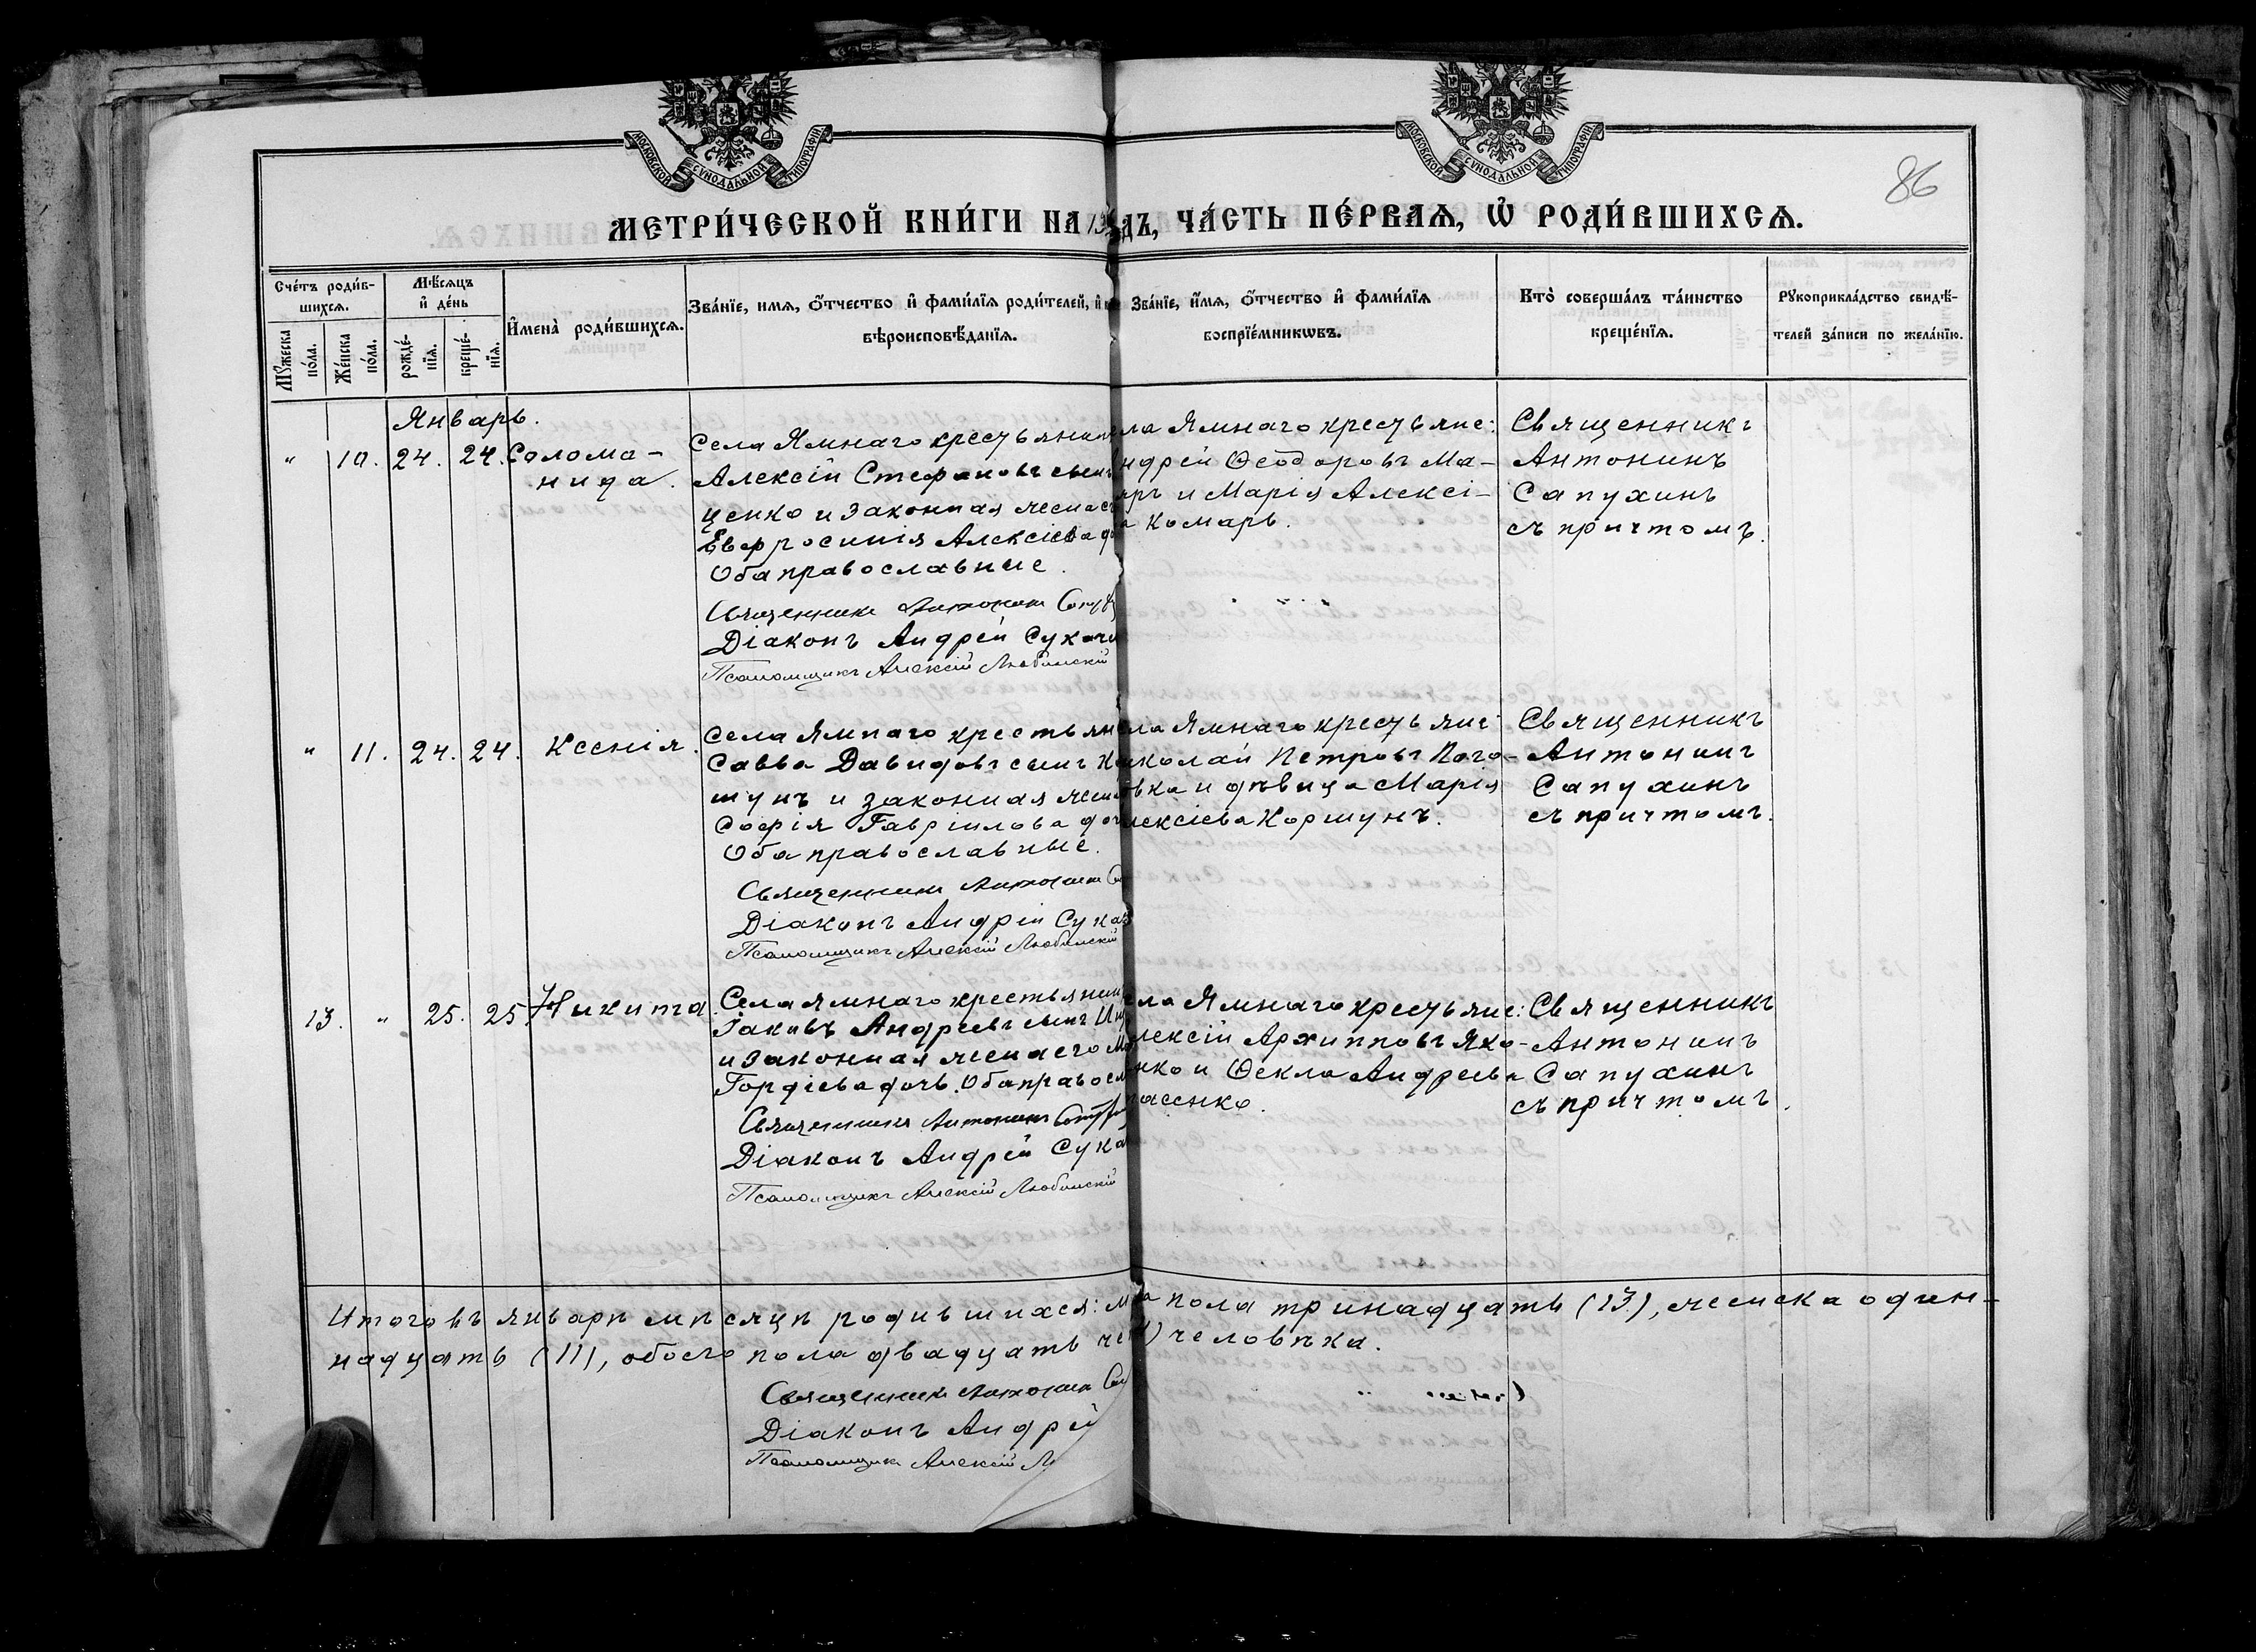 МОСКОВСКОЙ СѴНОДАЛЬНОЙ ТИПОГРАФІИ
МОСКОВСКОЙ СѴНОДАЛЬНОЙ ТИПОГРАФІИ
86
МЕТРИ́ЧЕСКОЙ КНИ́ГИ НА
ДЪ, ЧА́СТЬ ПЕ́РВАѦ, Ѽ РОДИ́ВШИХСѦ.
Сче́тъ роди́в-
шихсѧ.
Мꙋ́жеска по́ла.
Же́нска по́ла.
Мѣ́сѧцъ
и҆ де́нь
рожде́-
нїѧ.
креще́-
нїѧ.
И҆мена̀ роди́вшихсѧ.
Зва́нїе, имѧ, ѻ҆́тчество и҆ фами́лїѧ роди́телей, и҆
вѣроисповѣ́данїѧ.
Зва́нїе, и҆́мѧ, ѻ҆́тчество и҆ фами́лїѧ
воспрїе́мникѡвъ.
Кто̀ соверша́лъ та́инство
креще́нїѧ.
Рꙋкоприкла́дство свидѣ́-
телей за́писи по жела́нїю.
Январь.
" 10. 24. 24. Солома-
нида.
Села Ямнаго крестьянинъ
Алексій Стефановъ сынъ
ценко и законная жена
Евфросинія Алексіева
Оба православные.
Священникъ Антонинъ
Діаконъ Андрей
Псаломщикъ Алексій Любимскій
ла Ямнаго крестьяне:
ндрей Ѳеодоровъ Ма-
яръ и Марія Алексі-
а Комарь.
Священникъ
Антонинъ
Сапухинъ
съ причтомъ.
" 11. 24. 24. Ксенія.
Села Ямнаго крестьян
Савва Давидовъ сынъ К
шунъ и законная жена
Софія Гавріилова доч
Оба православные.
Священникъ Антонинъ
Діаконъ Андрей
Псаломщикъ Алексій Любимскій
ела Ямнаго крестьяне
иколай Петровъ Пого-
ѣлка и дѣвица Марія
лексіева Коршунъ.
Священникъ
Антонинъ
Сапухинъ
съ причтомъ.
13. " 25. 25. Никита.
Села Ямнаго крестьянинъ
Іаковъ Андреевъ сынъ
и законная жена его
Гордіева дочь. Оба правосл
Священникъ Антонинъ
Діаконъ Андрей
Псаломщикъ Алексій Любимскій
ла Ямнаго крестьяне:
лексій Архипповъ Яко-
нко и Ѳекла Андреева
пасенко.
Священникъ
Антонинъ
Сапухинъ
съ причтомъ.
Итого въ январѣ мѣсяцѣ родившихся: м
ка пола тринадцать (13), женска один-
надцать (11), обоего пола двадцать че
) человѣка.
Священникъ Антонинъ
Діаконъ Андрей
Псаломщикъ Алексій Л